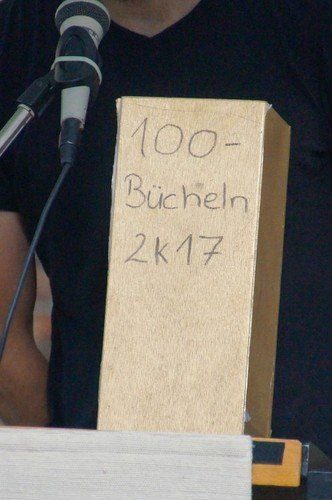 100-
Bücheln
2k17